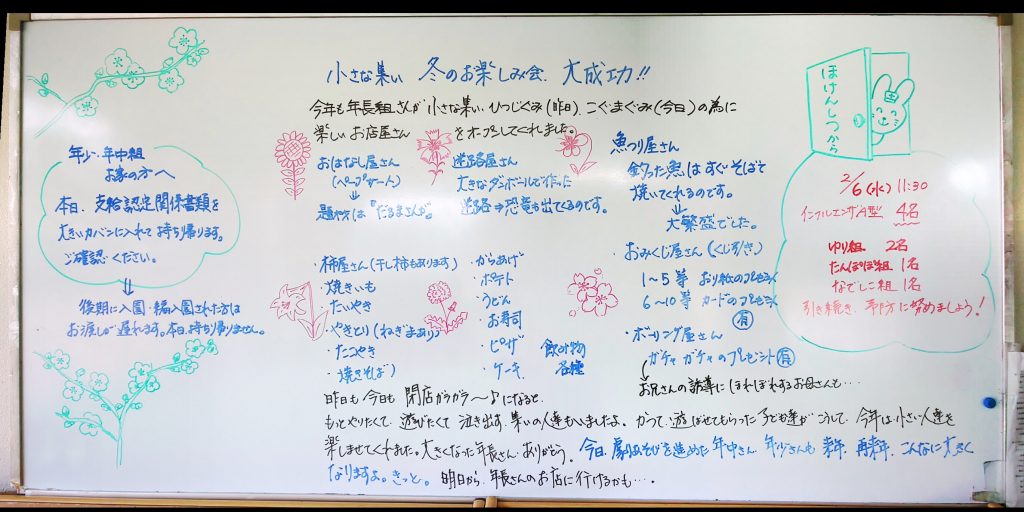 小さな集い 冬のお楽しみ会 大成功!!
今年も年長組さんが小さな集い ひつじぐみ(昨日) こぐまぐみ(今日)の為に
楽しいお店屋さん をオープンしてくれました。
おはなし屋さん
(ペープサート)
題材は「だるまさんが」
迷路屋さん
大きなダンボールで作った
迷路⇒恐竜も出てくるのです。
魚つり屋さん
釣った魚はすぐそばで
焼いてくれるのです。
↓
大繁盛でした。
おみくじ屋さん(くじ引き)
1〜5等 おり紙のプレゼント
6〜10等 カードのプレゼント
有
・ボーリング屋さん
ガチャガチャのプレゼント有
お兄さんの誘導にほれぼれするお母さんも…
・柿屋さん(干し柿もあります)
・焼きいも
・たいやき
・やきとり(ねぎまあり)
・たこやき
・焼きそば
・からあげ
・ポテト
・うどん
・お寿司
・ピザ
・ケーキ
飲み物
各種
昨日も今日も閉店ガラガラ〜♪になると、
もっとやりたくて、遊びたくて泣き出す、集いの人達もいましたよ。かつて、遊ばせてもらった子ども達が こうして、今年は小さい人達を
楽しませてくれました。大きくなった年長さん、ありがとう。今日、劇あそびを進めた年中さん、年少さんも来年、再来年、こんなに大きく
なりますよ。きっと。明日から、年長さんのお店に行けるかも…。
年少・年中組
お家の方へ
本日、支給認定関係書類を
大きいカバンに入れて持ち帰ります。
ご確認ください。
⇓
後期に入園・編入園された方は
お渡しが遅れます。本日、持ち帰りません。
ほけんしつから
2/6(水) 11:30
インフルエンザA型 4名
ゆり組 2名
たんぽぽ組 1名
なでしこ組 1名
引き続き、予防に努めましょう!